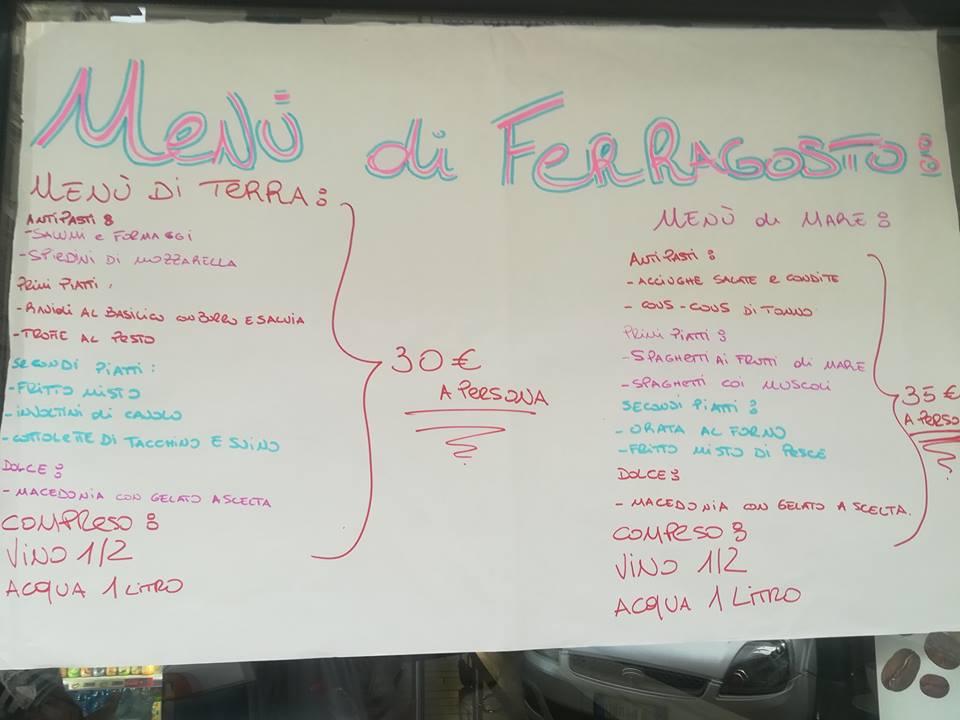 MENÙ di FERRAGOSTO:
MENÙ DI TERRA:
ANTIPASTI:
-SALUMI e FORMAGGI
-SPIEDINI DI MOZZARELLA
PRIMI PIATTI:
-RAVIOLI AL BASILICO CON BURRO E SALVIA
-TROFIE AL PESTO
SECONDI PIATTI:
-FRITTO MISTO
-INVOLTINI di CAVOLO
-COTTOLETTE DI TACCHINO E SUINO
DOLCE:
- MACEDONIA CON GELATO A SCELTA
COMPRESO:
VINO 1/2
ACQUA 1 LITRO
30 €
A PERSONA
MENÙ di MARE:
ANTIPASTI:
- ACCIUGHE SALATE e CONDITE
- COUS-COUS DI TONNO
PRIMI PIATTI:
-SPAGHETTI AI FRUTTI di MARE
-SPAGHETTI COI MUSCOLI
SECONDI PIATTI:
- ORATA AL FORNO
-FRITTO MISTO DI PESCE
DOLCE:
- MACEDONIA CON GELATO A SCELTA.
COMPESO:
VINO 1/2
ACQUA 1 LITRO
35 €
A PERSO